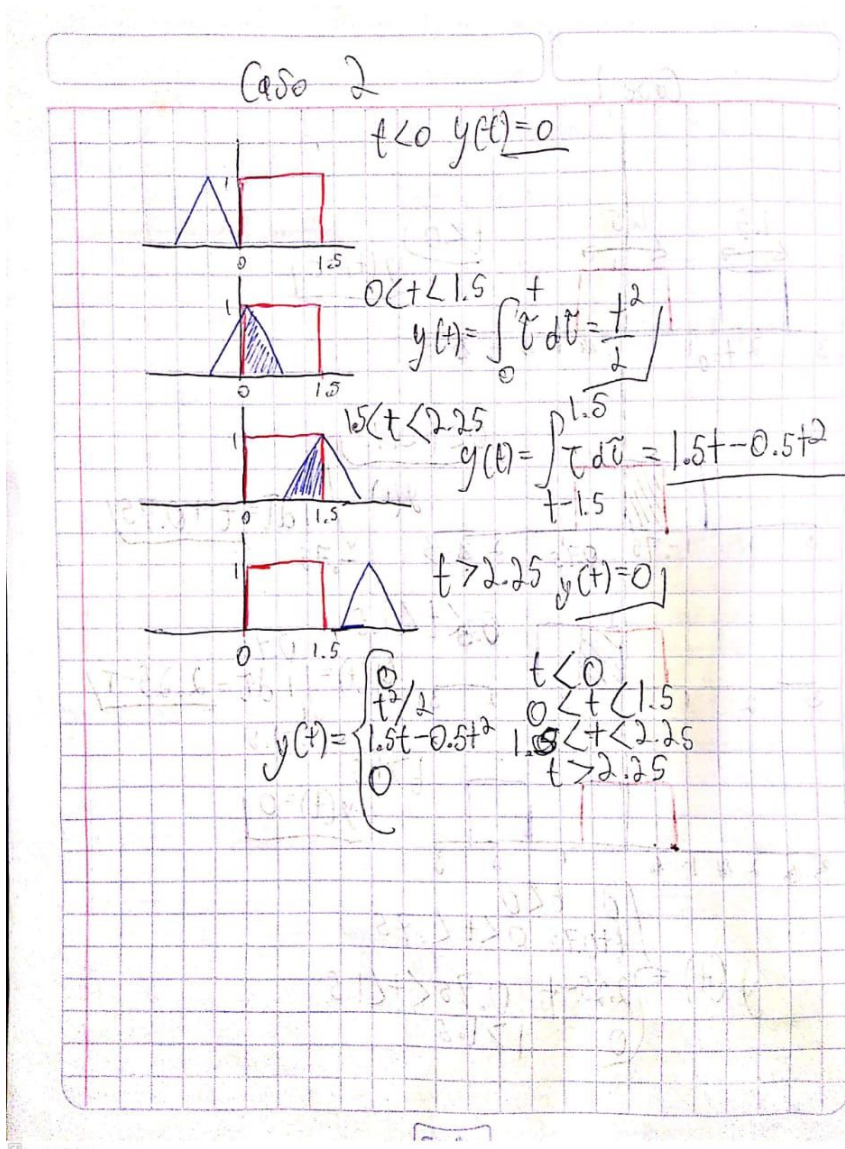 Caso 2
t<0 y(t)=0
1
0 1.5
0<t<1.5
y(t)=∫₀ᵗ τ dτ = t²/2
1
0 1.5
1.5<t<2.25
y(t)=∫_{t-1.5}^{1.5} τ dτ = 1.5t-0.5t²
1
0 1.5
t>2.25 y(t)=0
1
0 1.5
y(t)= {
0 t<0
t²/2 0<t<1.5
1.5t-0.5t² 1.5<t<2.25
0 t>2.25